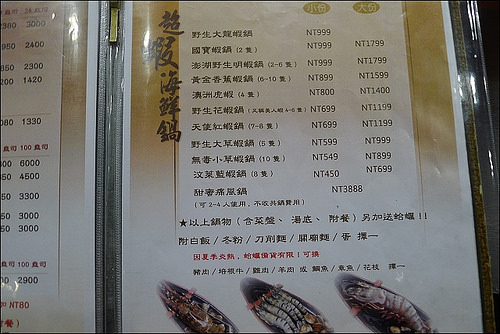 超蝦海鮮鍋
小份 大份
野生大龍蝦鍋 NT999
國寶蝦鍋 (2 隻) NT999 NT1799
澎湖野生明蝦鍋 (2-6 隻) NT999 NT1799
黃金香蕉蝦鍋 (6-10 隻) NT899 NT1599
澳洲虎蝦 (4 隻) NT800 NT1400
野生花蝦鍋 (又稱美人蝦 4-6 隻) NT699 NT1199
天使紅蝦鍋 (7-8 隻) NT699 NT1199
野生大草蝦鍋 (5 隻) NT599 NT999
無毒小草蝦鍋 (10 隻) NT549 NT899
汶萊藍蝦鍋 (8 隻) NT450 NT699
甜奢痛風鍋 NT3888
(可 2-4 人使用, 不收共鍋費用)
★以上鍋物 (含菜盤、湯底、附餐) 另加送蛤蠣!!
附白飯/冬粉/刀削麵/關廟麵/蛋 擇一
因夏季炎熱, 蛤蠣備貨有限!可換
豬肉/培根牛/雞肉/羊肉 或 鯛魚/章魚/花枝 擇一
24 盎司
2380 3000
1980 2400
1850 2300
1200 1420
1080 1330
盎司 100 盎司
00 6000
50 4500
50 3300
50 3000
50 3000
盎司 100 盎司
00 2900
加 NT80
餐)